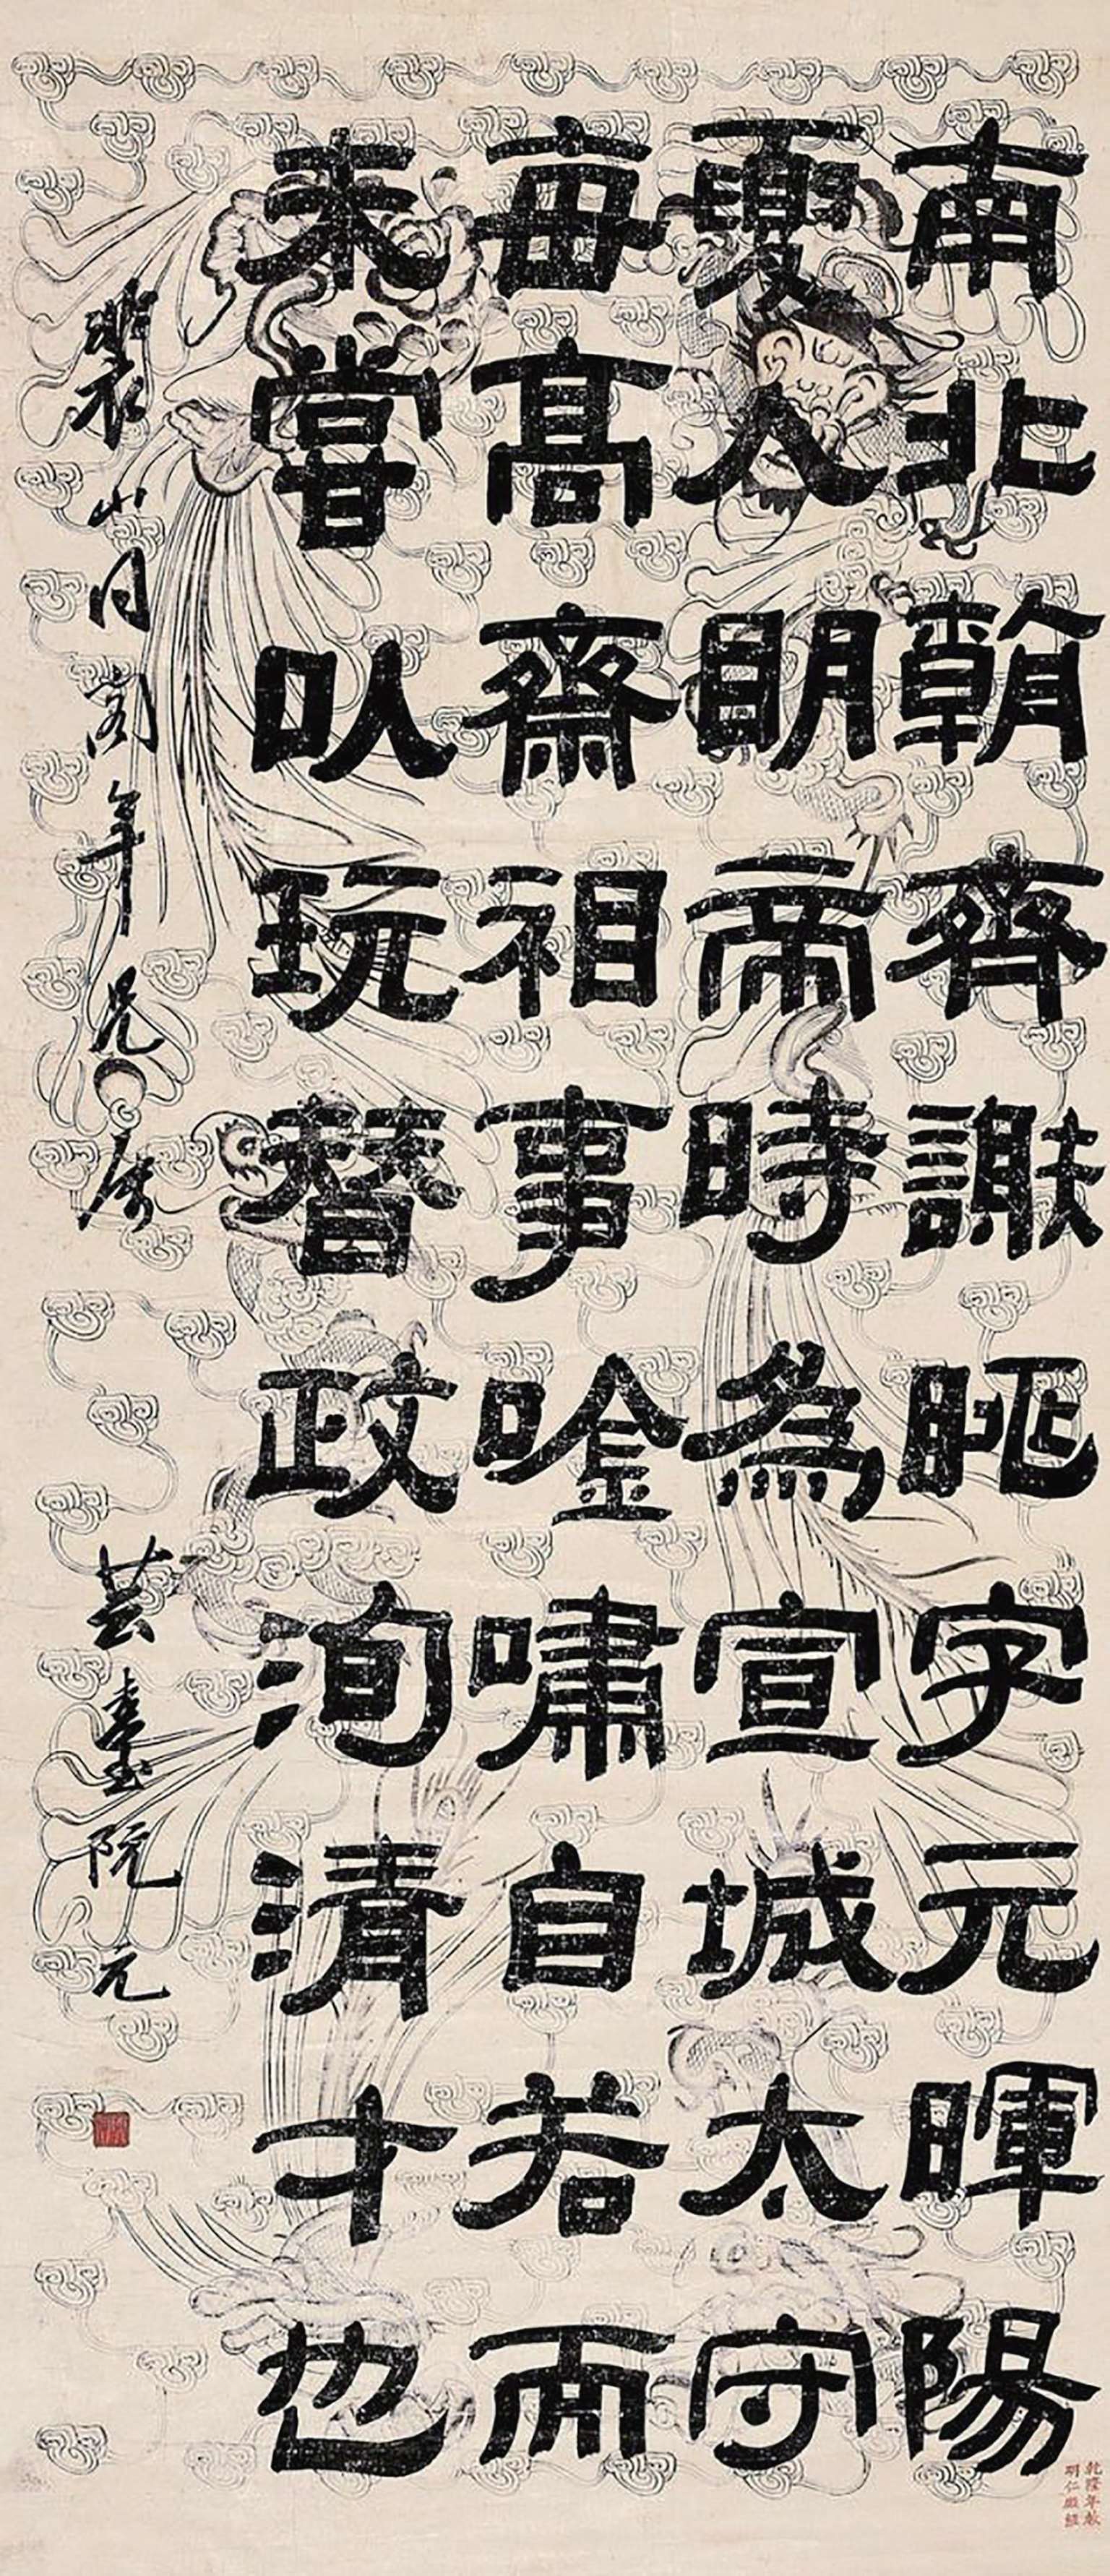 南北朝齊謝朓字元暉陽
夏人明帝時為宣城太守
每高齋祖事唫嘯自若而
未嘗以玩替政洵清才也
裴山同閣年兄屬 芸臺阮元
乾隆年仿
明仁殿紙